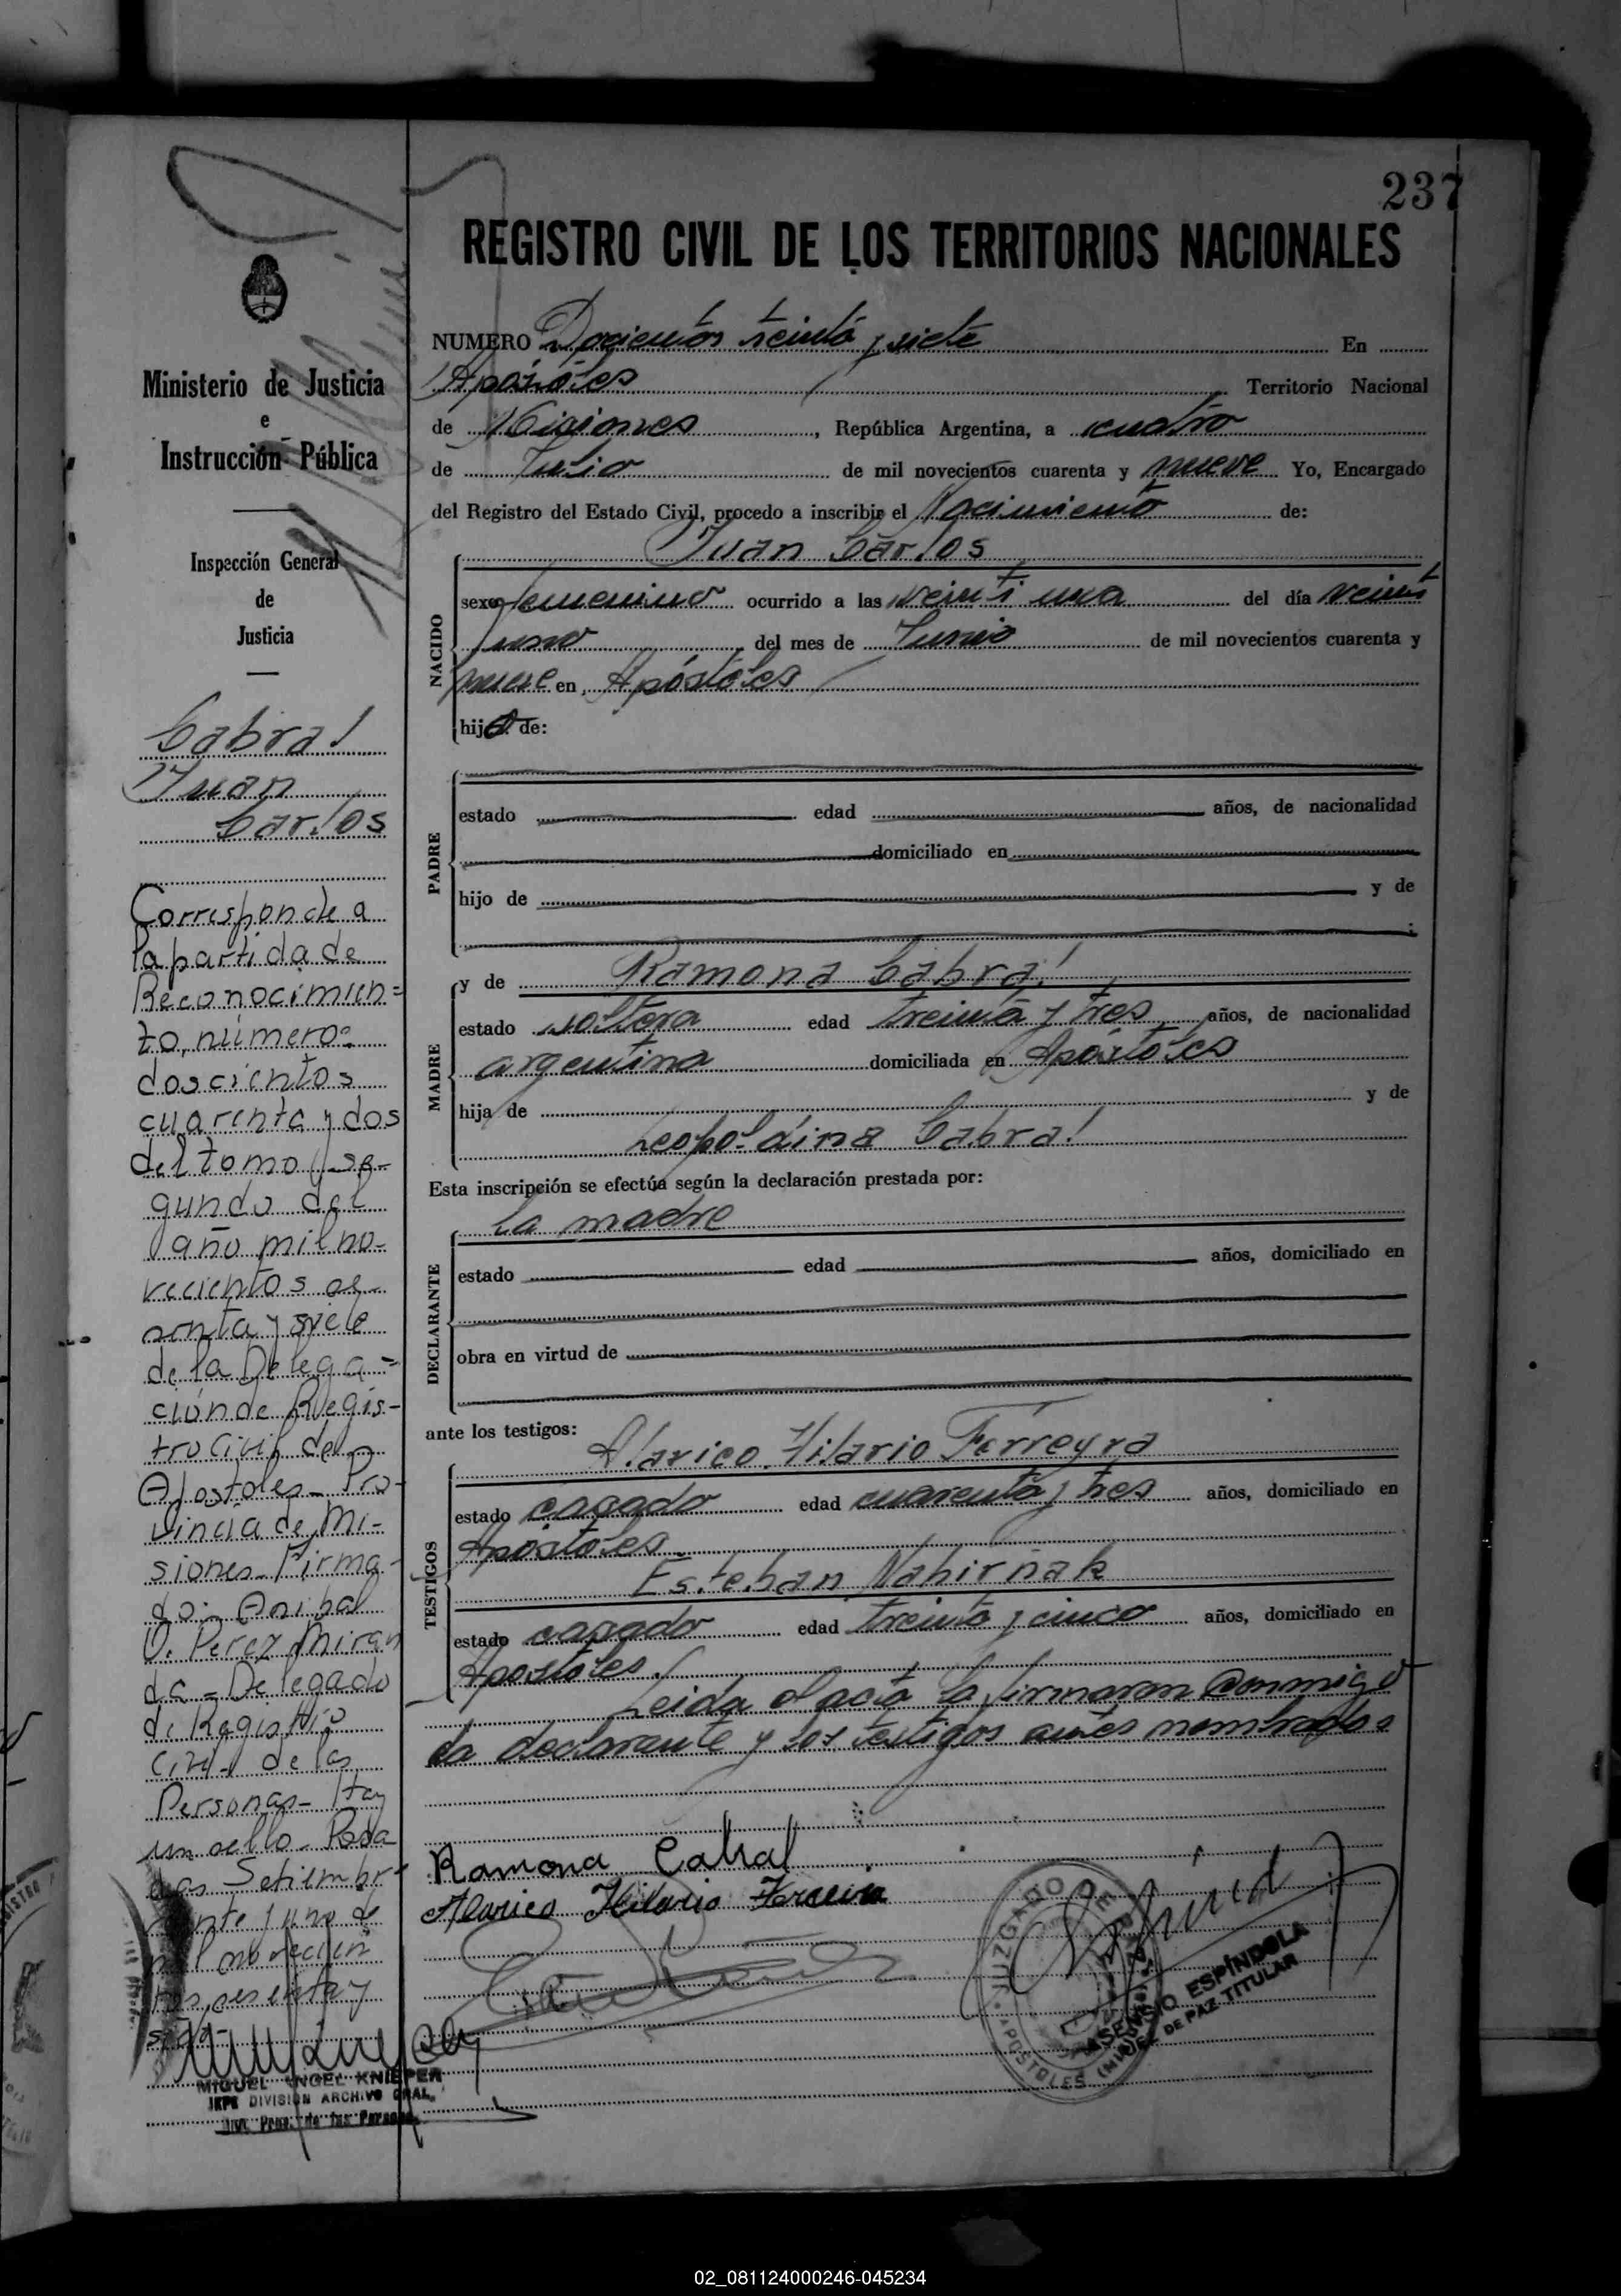 237
REGISTRO CIVIL DE LOS TERRITORIOS NACIONALES
Ministerio de Justicia
e
Instrucción Pública
Inspección General
de
Justicia
Cabral
Juan
Carlos
Corresponde a
la partida de
Reconocimien=
to, número:
doscientos
cuarenta y dos
del tomo se-
gundo del
año mil no-
vecientos se-
senta y siete
de la Delega=
ción de Regis-
tro Civil de
Apostoles - Pro-
vincia de Mi-
siones - Firma-
do: Anibal
O. Perez Miran
da - Delegado
de Registro
Civil de las
Personas - Hay
un sello - Posa
das Setiembre
veinte y uno de
mil novecien
tos sesenta y
MIGUEL ANGEL KNIEPER
JEFE DIVISION ARCHIVO GRAL.
NUMERO Docientos treinta y siete En
Apóstoles Territorio Nacional
de Misiones, República Argentina, a cuatro
de Julio de mil novecientos cuarenta y nueve Yo, Encargado
del Registro del Estado Civil, procedo a inscribir el Nacimiento de:
Juan Carlos
NACIDO
sexo femenino ocurrido a las veinti una del día veinti
uno del mes de Junio de mil novecientos cuarenta y
nueve en Apóstoles
hijo de:
PADRE
estado edad años, de nacionalidad
domiciliado en
hijo de y de
;
MADRE
y de Ramona Cabral
estado soltera edad treinta y tres años, de nacionalidad
argentina domiciliada en Apóstoles
hija de y de
Leopoldina Cabral
Esta inscripción se efectúa según la declaración prestada por:
La madre
DECLARANTE
estado edad años, domiciliado en
obra en virtud de
ante los testigos:
TESTIGOS
Alarico Hilario Ferreyra
estado casado edad cuarenta y tres años, domiciliado en
Apóstoles
Esteban Nahirñak
estado casado edad treinta y cinco años, domiciliado en
Apostoles.
Leida el acta la firmaron conmigo
la declarante y los testigos antes nombrados
Ramona Cabral
Alarico Hilario Ferreira
JUZGADO DE PAZ
APOSTOLES
ASENSIO ESPÍNDOLA
JUEZ DE PAZ TITULAR
02_081124000246-045234